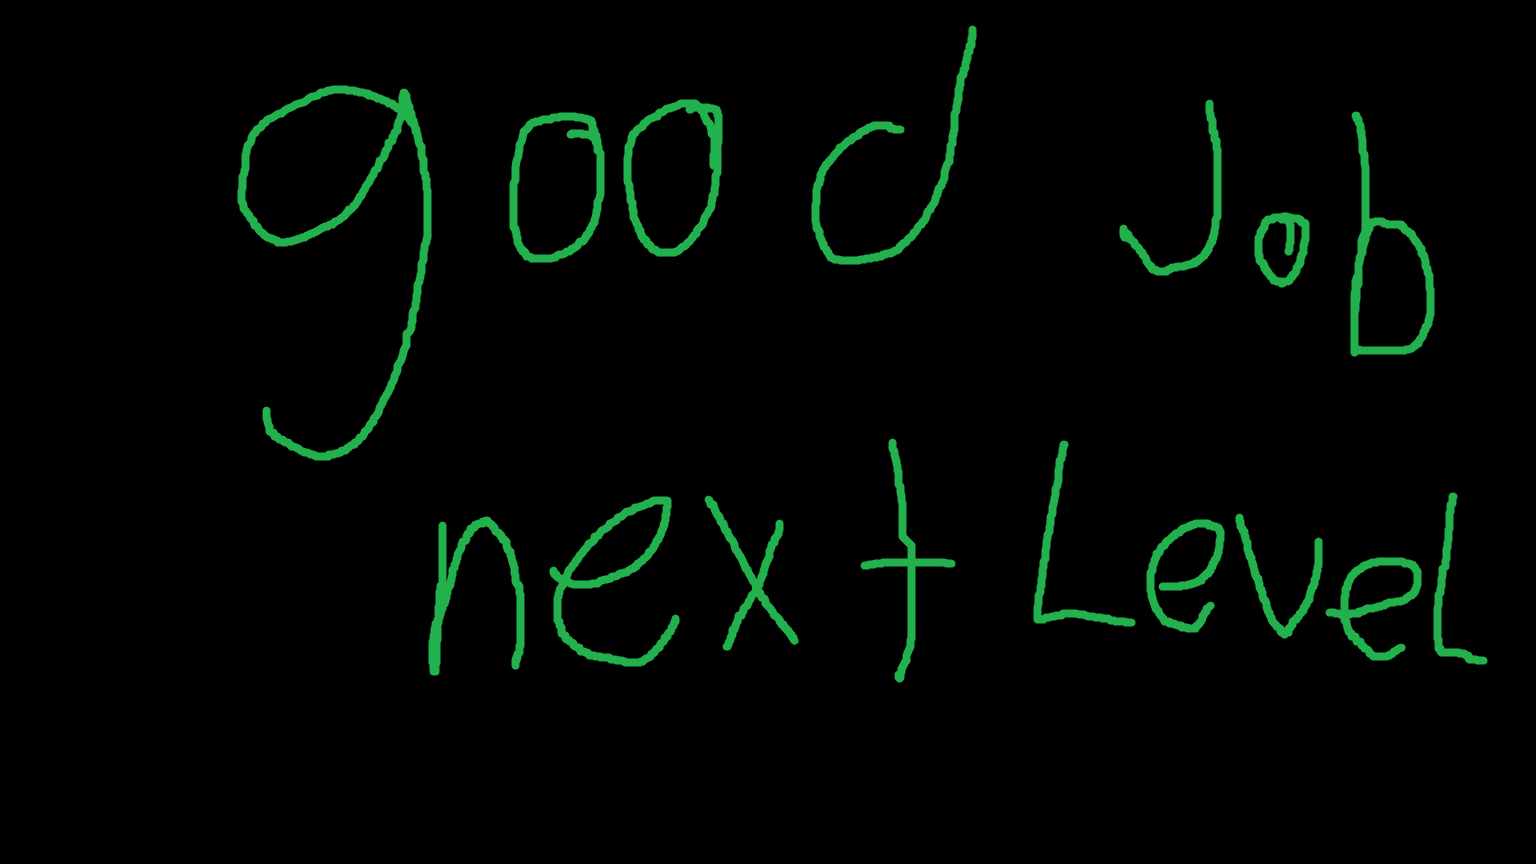 good Job
next Level